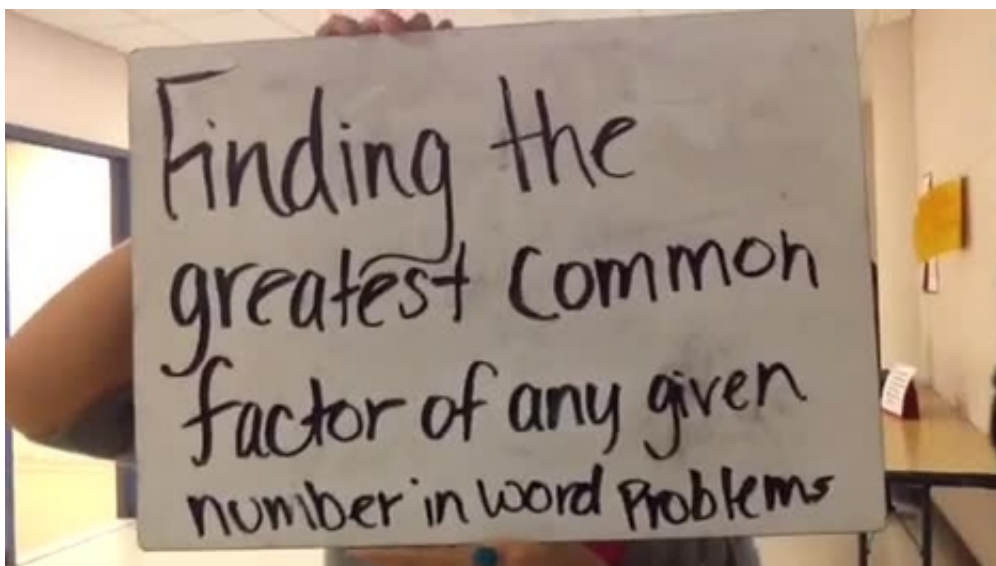 Finding the
greatest common
factor of any given
number in word Problems